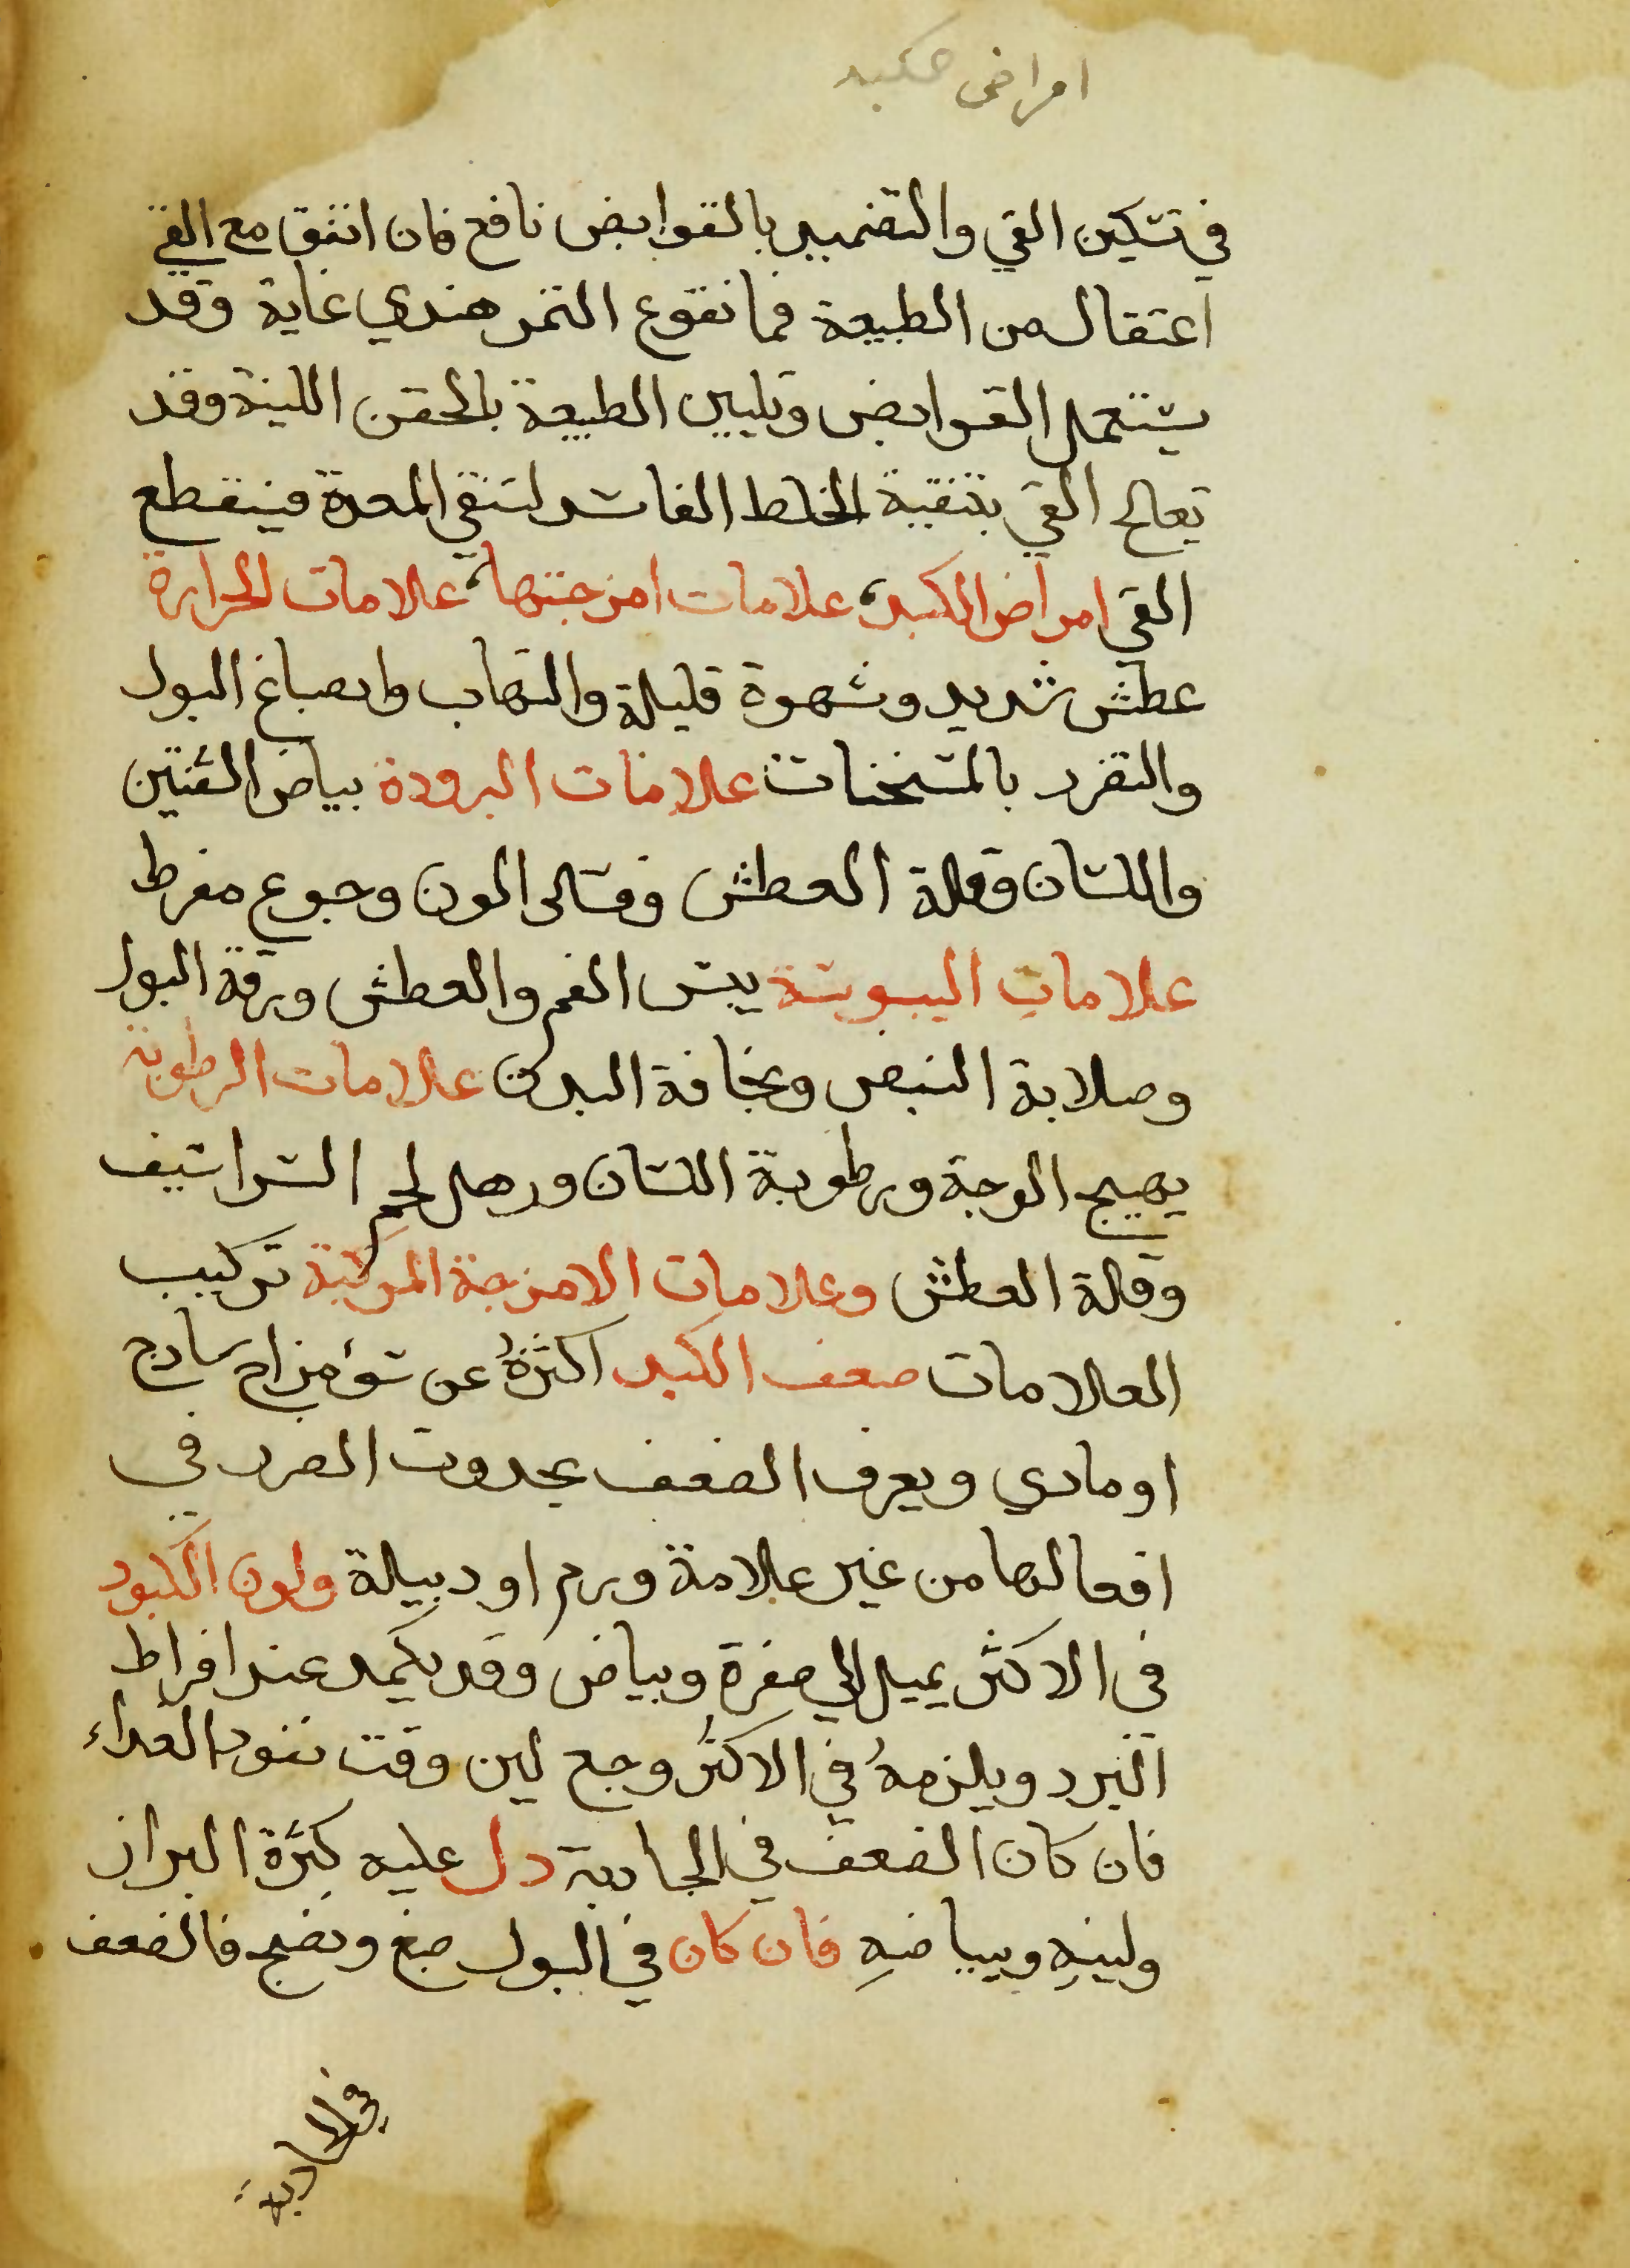 امراض كبد
في تسكين القي والتضميد بالقوابض نافع فان اتفق مع القي
اعتقال من الطبيعة فما نقوع التمر هندي غاية وقد
يستعمل القوابض وتليين الطبيعة بالحقن اللينة وقد
يعالج القي بتنقية الخلط الفاسد لتنقي المعدة فينقطع
القي امراض الكبد علامات امزجتها علامات الحرارة
عطش شديد وشهوة قليلة والتهاب وانصباغ البول
والتضرر بالمسخنات علامات البرودة بياض الشفتين
واللسان وقلة العطش وفساد اللون وجوع مفرط
علامات اليبوسة يبس الفم والعطش ورقة البول
وصلابة النبض ونحافة البدن علامات الرطوبة
يهيج الوجة ورطوبة اللسان ورهل لحم الشراسيف
وقلة العطش وعلامات الامزجة المركبة تركيب
العلامات ضعف الكبد اكثرهُ عن سؤ مزاج سادج
او مادي ويعرف الضعف بحدوث الضرر في
افعالها من غير علامة ورم او دبيلة ولون الكبود
في الاكثر يميل الي صفرة وبياض وقد يكمد عند افراط
البرد ويلزمهُ في الاكثر وجع لين وقت نفود الغداء
فان كان الضعف في الجادبة دل عليه كثرة البراز
ولينهِ وبياضهِ فان كان في البول صبغ ونضج فالضعف
في الجادبة